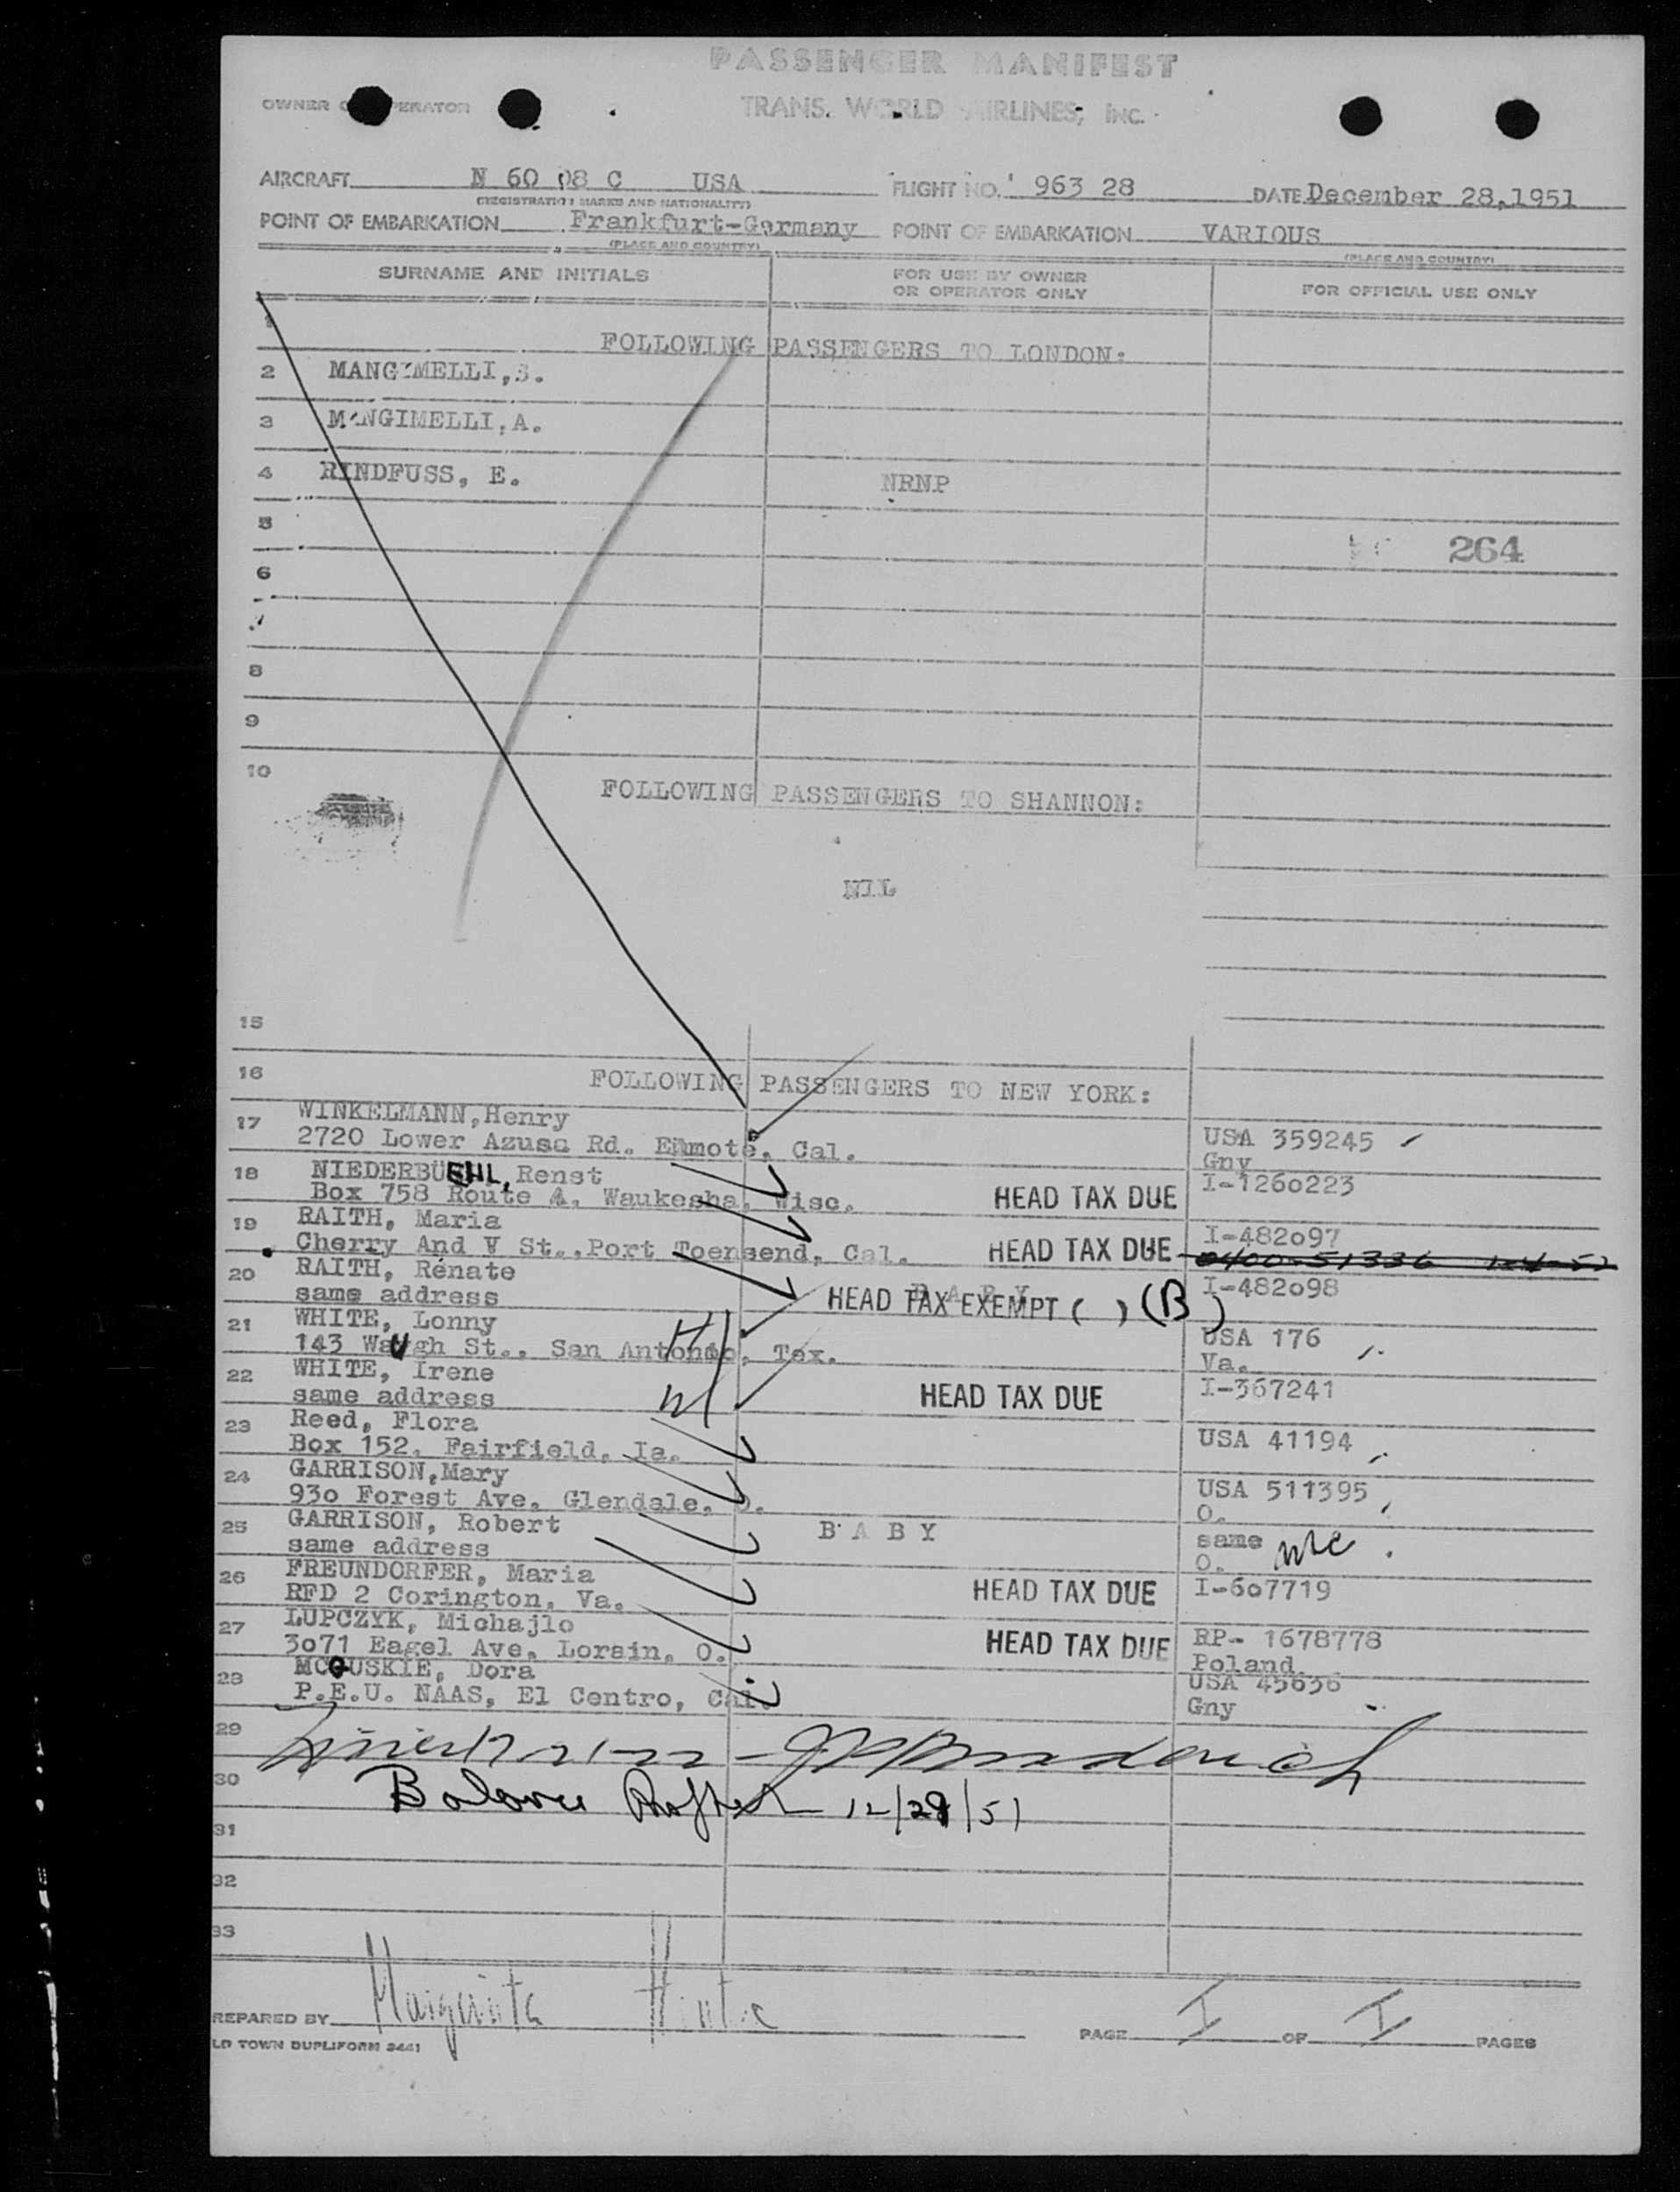 PASSENGER MANIFEST
OWNER OPERATOR TRANS. WORLD AIRLINES, INC.
AIRCRAFT N 60 08 C USA FLIGHT NO. 963 28 DATE December 28,1951
(REGISTRATION MARKS AND NATIONALITY)
POINT OF EMBARKATION Frankfurt-Germany POINT OF EMBARKATION VARIOUS
(PLACE AND COUNTRY) (PLACE AND COUNTRY)
SURNAME AND INITIALS FOR USE BY OWNER OR OPERATOR ONLY FOR OFFICIAL USE ONLY
1 FOLLOWING PASSENGERS TO LONDON:
2 MANGIMELLI,S.
3 MANGIMELLI,A.
4 RINDFUSS, E. NRNP
5
264
6
8
9
10 FOLLOWING PASSENGERS TO SHANNON:
NIL
15
16 FOLLOWING PASSENGERS TO NEW YORK:
17 WINKELMANN,Henry
2720 Lower Azusa Rd. Elmote, Cal. USA 359245
Gny
18 NIEDERBUEHL, Renst I-1260223
Box 758 Route 4, Waukesha, Wisc. HEAD TAX DUE
19 RAITH, Maria I-482097
Cherry And V St.,Port Toensend, Cal. HEAD TAX DUE
20 RAITH, Renate BABY I-482098
same address HEAD TAX EXEMPT ( ) (B)
21 WHITE, Lonny USA 176
143 Waugh St., San Antonio, Tex. Va.
22 WHITE, Irene I-367241
same address HEAD TAX DUE
23 Reed, Flora
Box 152, Fairfield, Ia. USA 41194
24 GARRISON,Mary USA 511395
930 Forest Ave. Glendale, O. O.
25 GARRISON, Robert BABY same
same address O.
26 FREUNDORFER, Maria I-607719
RFD 2 Corington, Va. HEAD TAX DUE
27 LUPCZYK, Michajlo RP- 1678778
3071 Eagel Ave, Lorain, O. HEAD TAX DUE Poland
28 MCGUSKIE, Dora USA 45636
P.E.U. NAAS, El Centro, Cal. Gny
29
30 12/28/51
31
32
33
REPARED BY Margarita PAGE I OF I PAGES
LD TOWN DUPLIFORM 3441